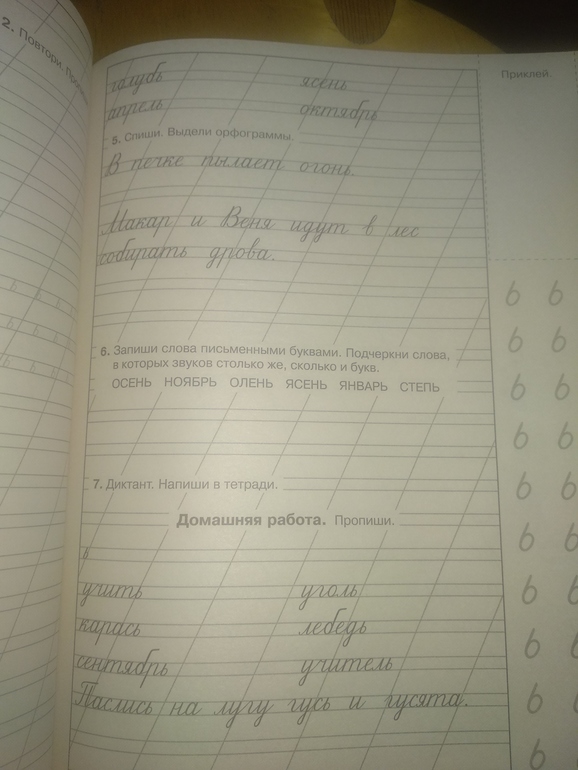 2. Повтори.
Приклей.
голубь ясень
апрель октябрь
5. Спиши. Выдели орфограммы.
В печке пылает огонь.
Макар и Веня идут в лес
собирать дрова.
6. Запиши слова письменными буквами. Подчеркни слова,
в которых звуков столько же, сколько и букв.
ОСЕНЬ НОЯБРЬ ОЛЕНЬ ЯСЕНЬ ЯНВАРЬ СТЕПЬ
7. Диктант. Напиши в тетради.
Домашняя работа. Пропиши.
ь
учить уголь
карась лебедь
сентябрь учитель
Паслись на лугу гусь и гусята.